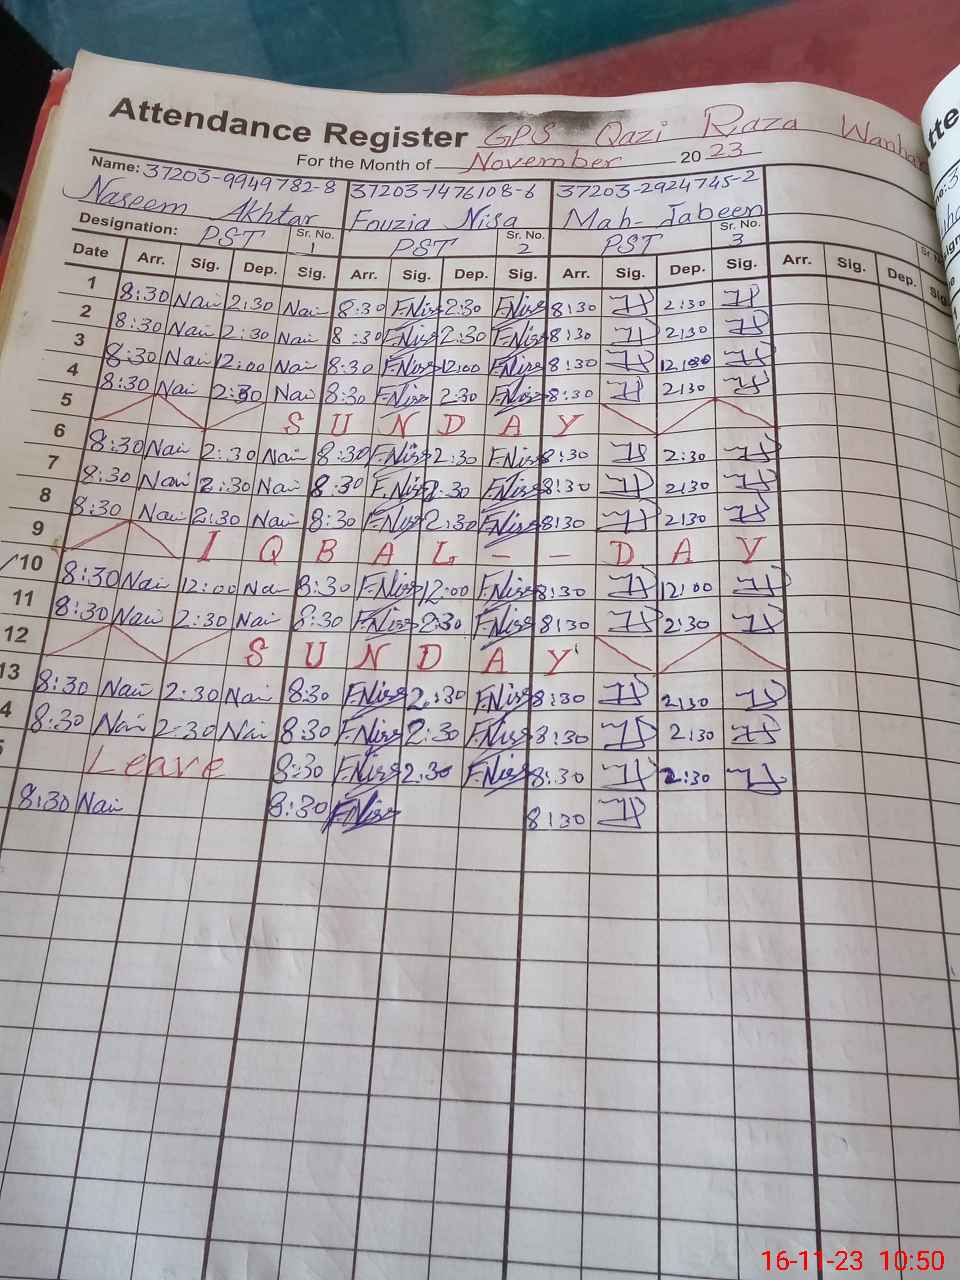 Attendance Register GPS Qazi Raza Wanhar
For the Month of November 2023
Name: 37203-9949782-8 37203-1476108-6 37203-2924745-2
Naseem Akhtar Fouzia Nisa Mah-Jabeen
Designation: PST Sr. No. 1 PST Sr. No. 2 PST Sr. No. 3
Date Arr. Sig. Dep. Sig. Arr. Sig. Dep. Sig. Arr. Sig. Dep. Sig. Arr. Sig. Dep. Sig.
1 8:30 Nai 2:30 Nai 8:30 F.Niss 2:30 F.Niss 8:30 2:30
2 8:30 Nai 2:30 Nai 8:30 F.Niss 2:30 F.Niss 8:30 2:30
3 8:30 Nai 12:00 Nai 8:30 F.Niss 12:00 F.Niss 8:30 12:00
4 8:30 Nai 2:30 Nai 8:30 F.Niss 2:30 F.Niss 8:30 2:30
5 SUNDAY
6 8:30 Nai 2:30 Nai 8:30 F.Niss 2:30 F.Niss 8:30 2:30
7 8:30 Nai 2:30 Nai 8:30 F.Niss 2:30 F.Niss 8:30 2:30
8 8:30 Nai 2:30 Nai 8:30 F.Niss 2:30 F.Niss 8:30 2:30
9 IQBAL--DAY
10 8:30 Nai 12:00 Nai 8:30 F.Niss 12:00 F.Niss 8:30 12:00
11 8:30 Nai 2:30 Nai 8:30 F.Niss 2:30 F.Niss 8:30 2:30
12 SUNDAY
13 8:30 Nai 2:30 Nai 8:30 F.Niss 2:30 F.Niss 8:30 2:30
4 8:30 Nai 2:30 Nai 8:30 F.Niss 2:30 F.Niss 8:30 2:30
5 Leave 8:30 F.Niss 2:30 F.Niss 8:30 2:30
8:30 Nai 8:30 F.Niss 8:30
16-11-23 10:50